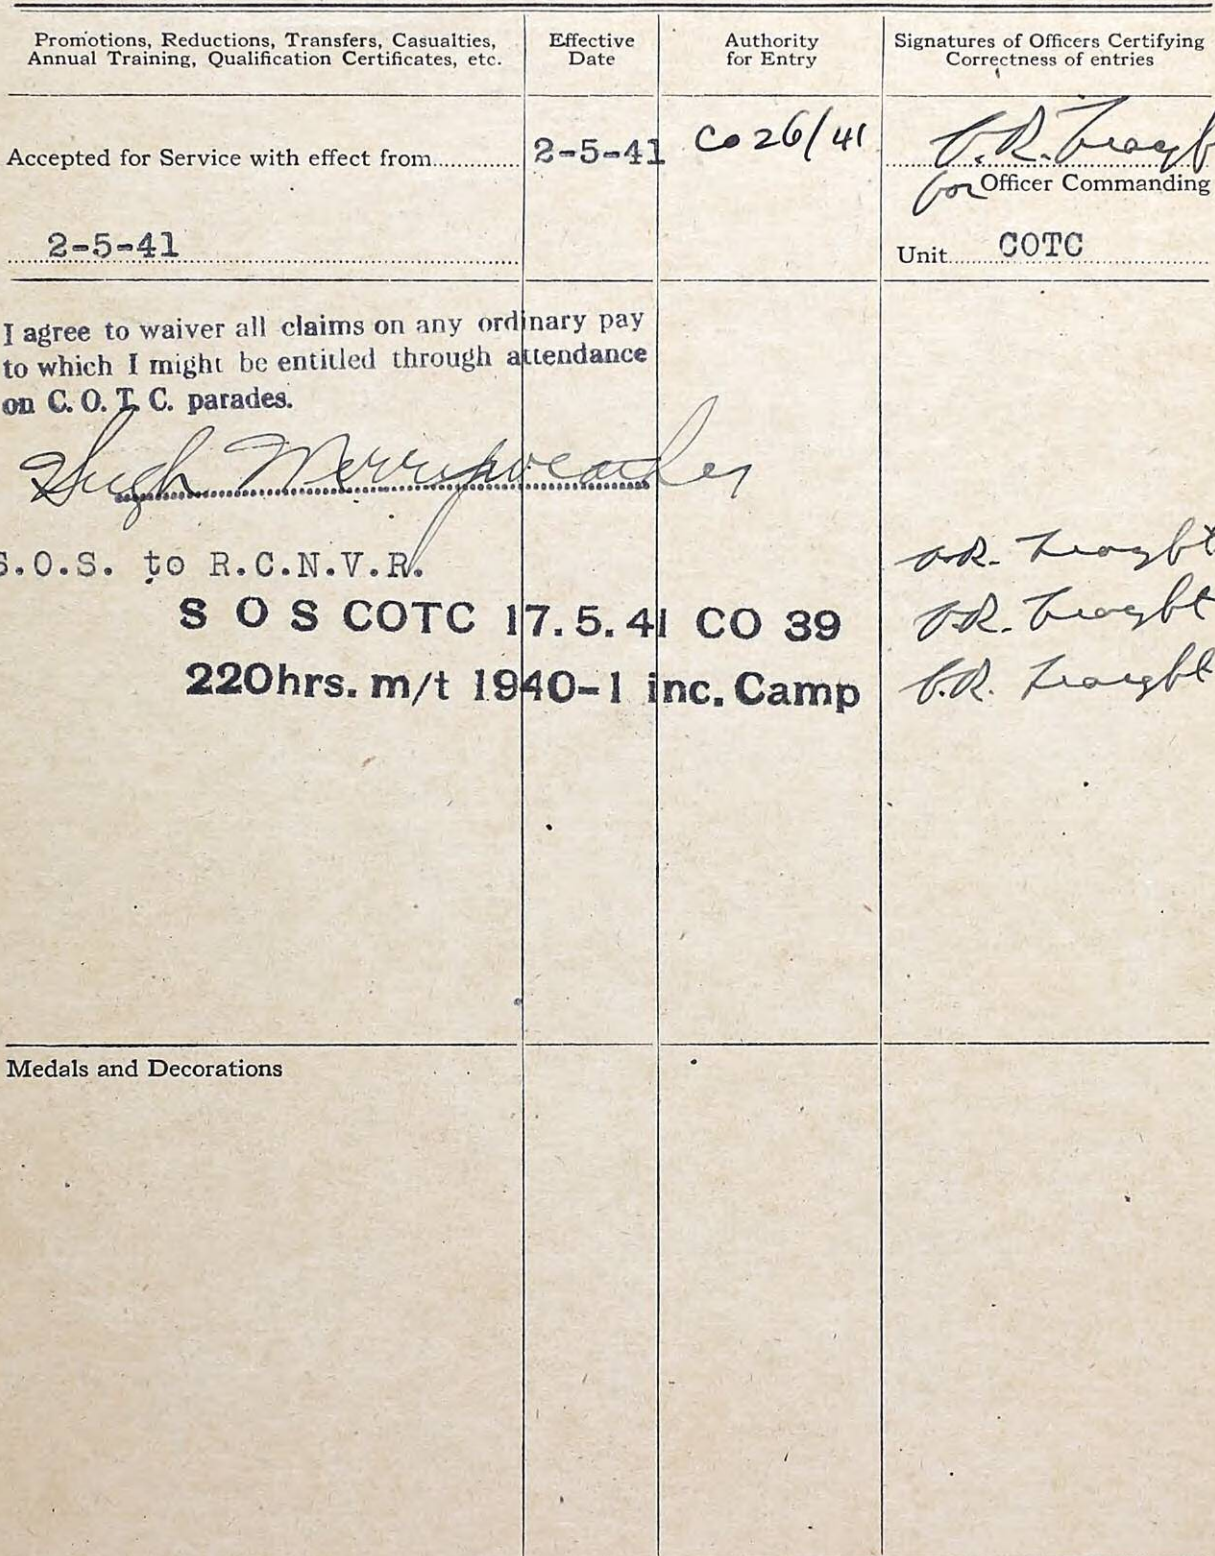 Promotions, Reductions, Transfers, Casualties,
Annual Training, Qualification Certificates, etc.
Effective
Date
Authority
for Entry
Signatures of Officers Certifying
Correctness of entries
Accepted for Service with effect from
2-5-41
Co 26/41
for Officer Commanding
2-5-41
Unit COTC
I agree to waiver all claims on any ordinary pay
to which I might be entitled through attendance
on C. O. T. C. parades.
Hugh Merryweather
S.O.S. to R.C.N.V.R.
S O S COTC 17.5.41 CO 39
220hrs. m/t 1940-1 inc. Camp
Medals and Decorations